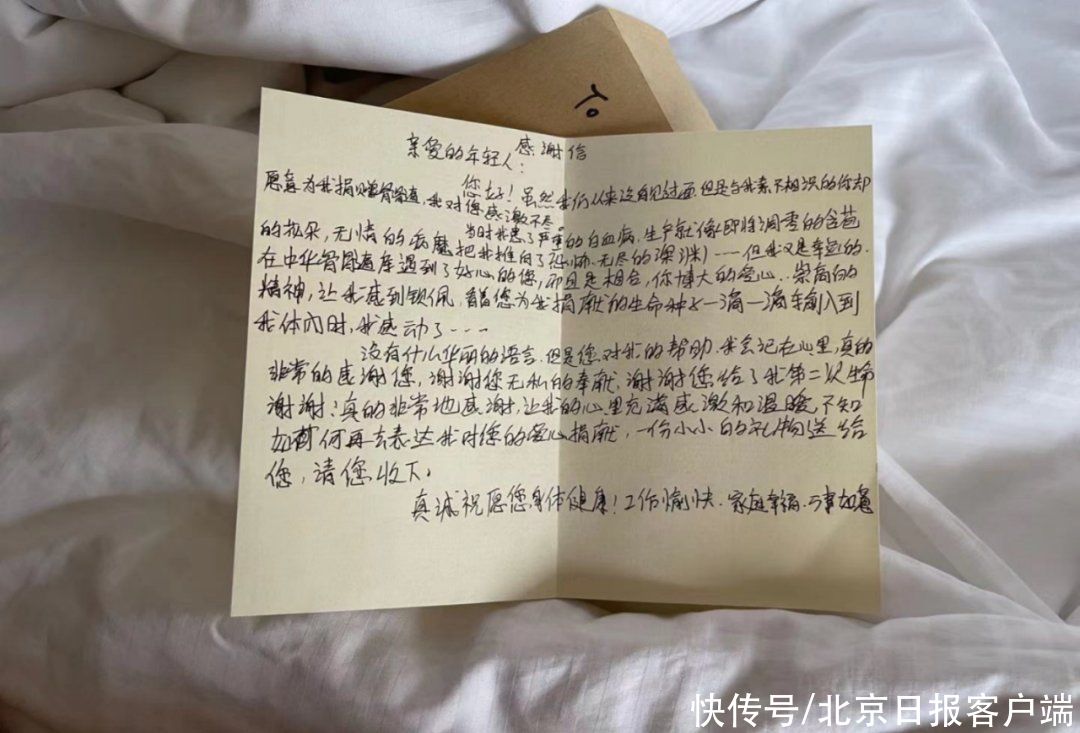 To
感谢信
亲爱的年轻人：
您好！虽然我们从来没有见过面，但是与我素不相识的你却
愿意为我捐赠骨髓，我对您感激不尽。
当时我患了严重的白血病，生产就像即将凋零的含苞
的花朵，无情的病魔把我推向了恐怖、无尽的深渊）……但我又是幸运的，
在中华骨髓库遇到了好心的您，而且是相合，你博大的爱心、崇高的
精神，让我感到钦佩，当您为我捐献的生命种子一滴一滴输入到
我体内时，我感动了……
没有什么华丽的语言，但是您对我的帮助，我会记在心里，真的
非常的感谢您，谢谢您无私的奉献，谢谢您给了我第二次生命
谢谢！真的非常地感谢，让我的心里充满感激和温暖，不知
如何再去表达我对您的爱心捐献，一份小小的礼物送给
您，请您收下。
真诚祝愿您身体健康！工作愉快、家庭幸福、万事如意
快传号/北京日报客户端